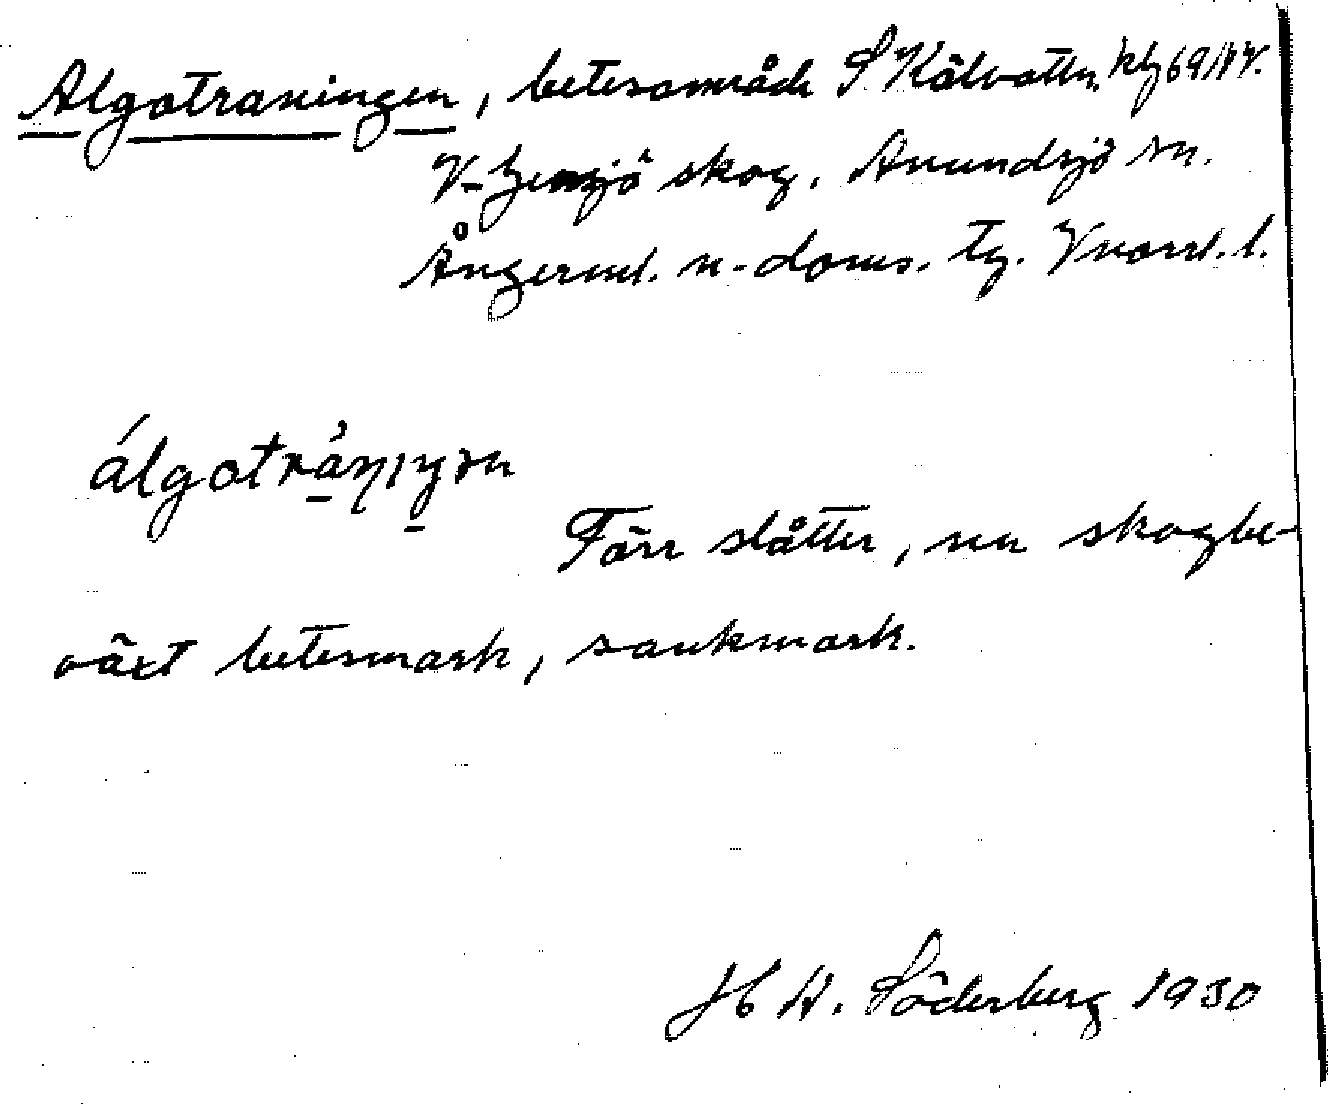 Algotraningen, betesområde S Kälvattn. kbl 69 NV.
V-Gensjö skog. Anundsjö sn.
Ångerml. n-doms. tg. Vnorrl. l.
álgotràniŋən
Förr slåtter, nu skogbe-
växt betesmark, sankmark.
H A. Söderberg 1930